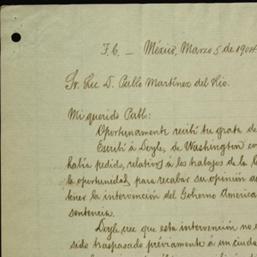 F. C. — México, Marzo 5 de 1904
Sr. Lic. D. Pablo Martínez del Río.
Mi querido Pablo:
Oportunamente recibí tu grata de
Escribí á Doyle, de Washington
había pedido, relativos á los trabajos de la
la oportunidad, para recabar su opinión
tener la intervención del Gobierno America
sentencia.
Doyle cree que esta intervención no
sido traspasado previamente á un ciuda